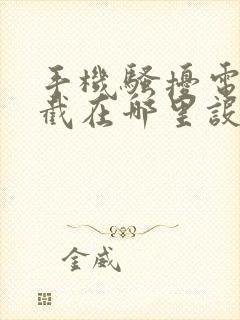 手機騷擾電
截在哪里設
金威